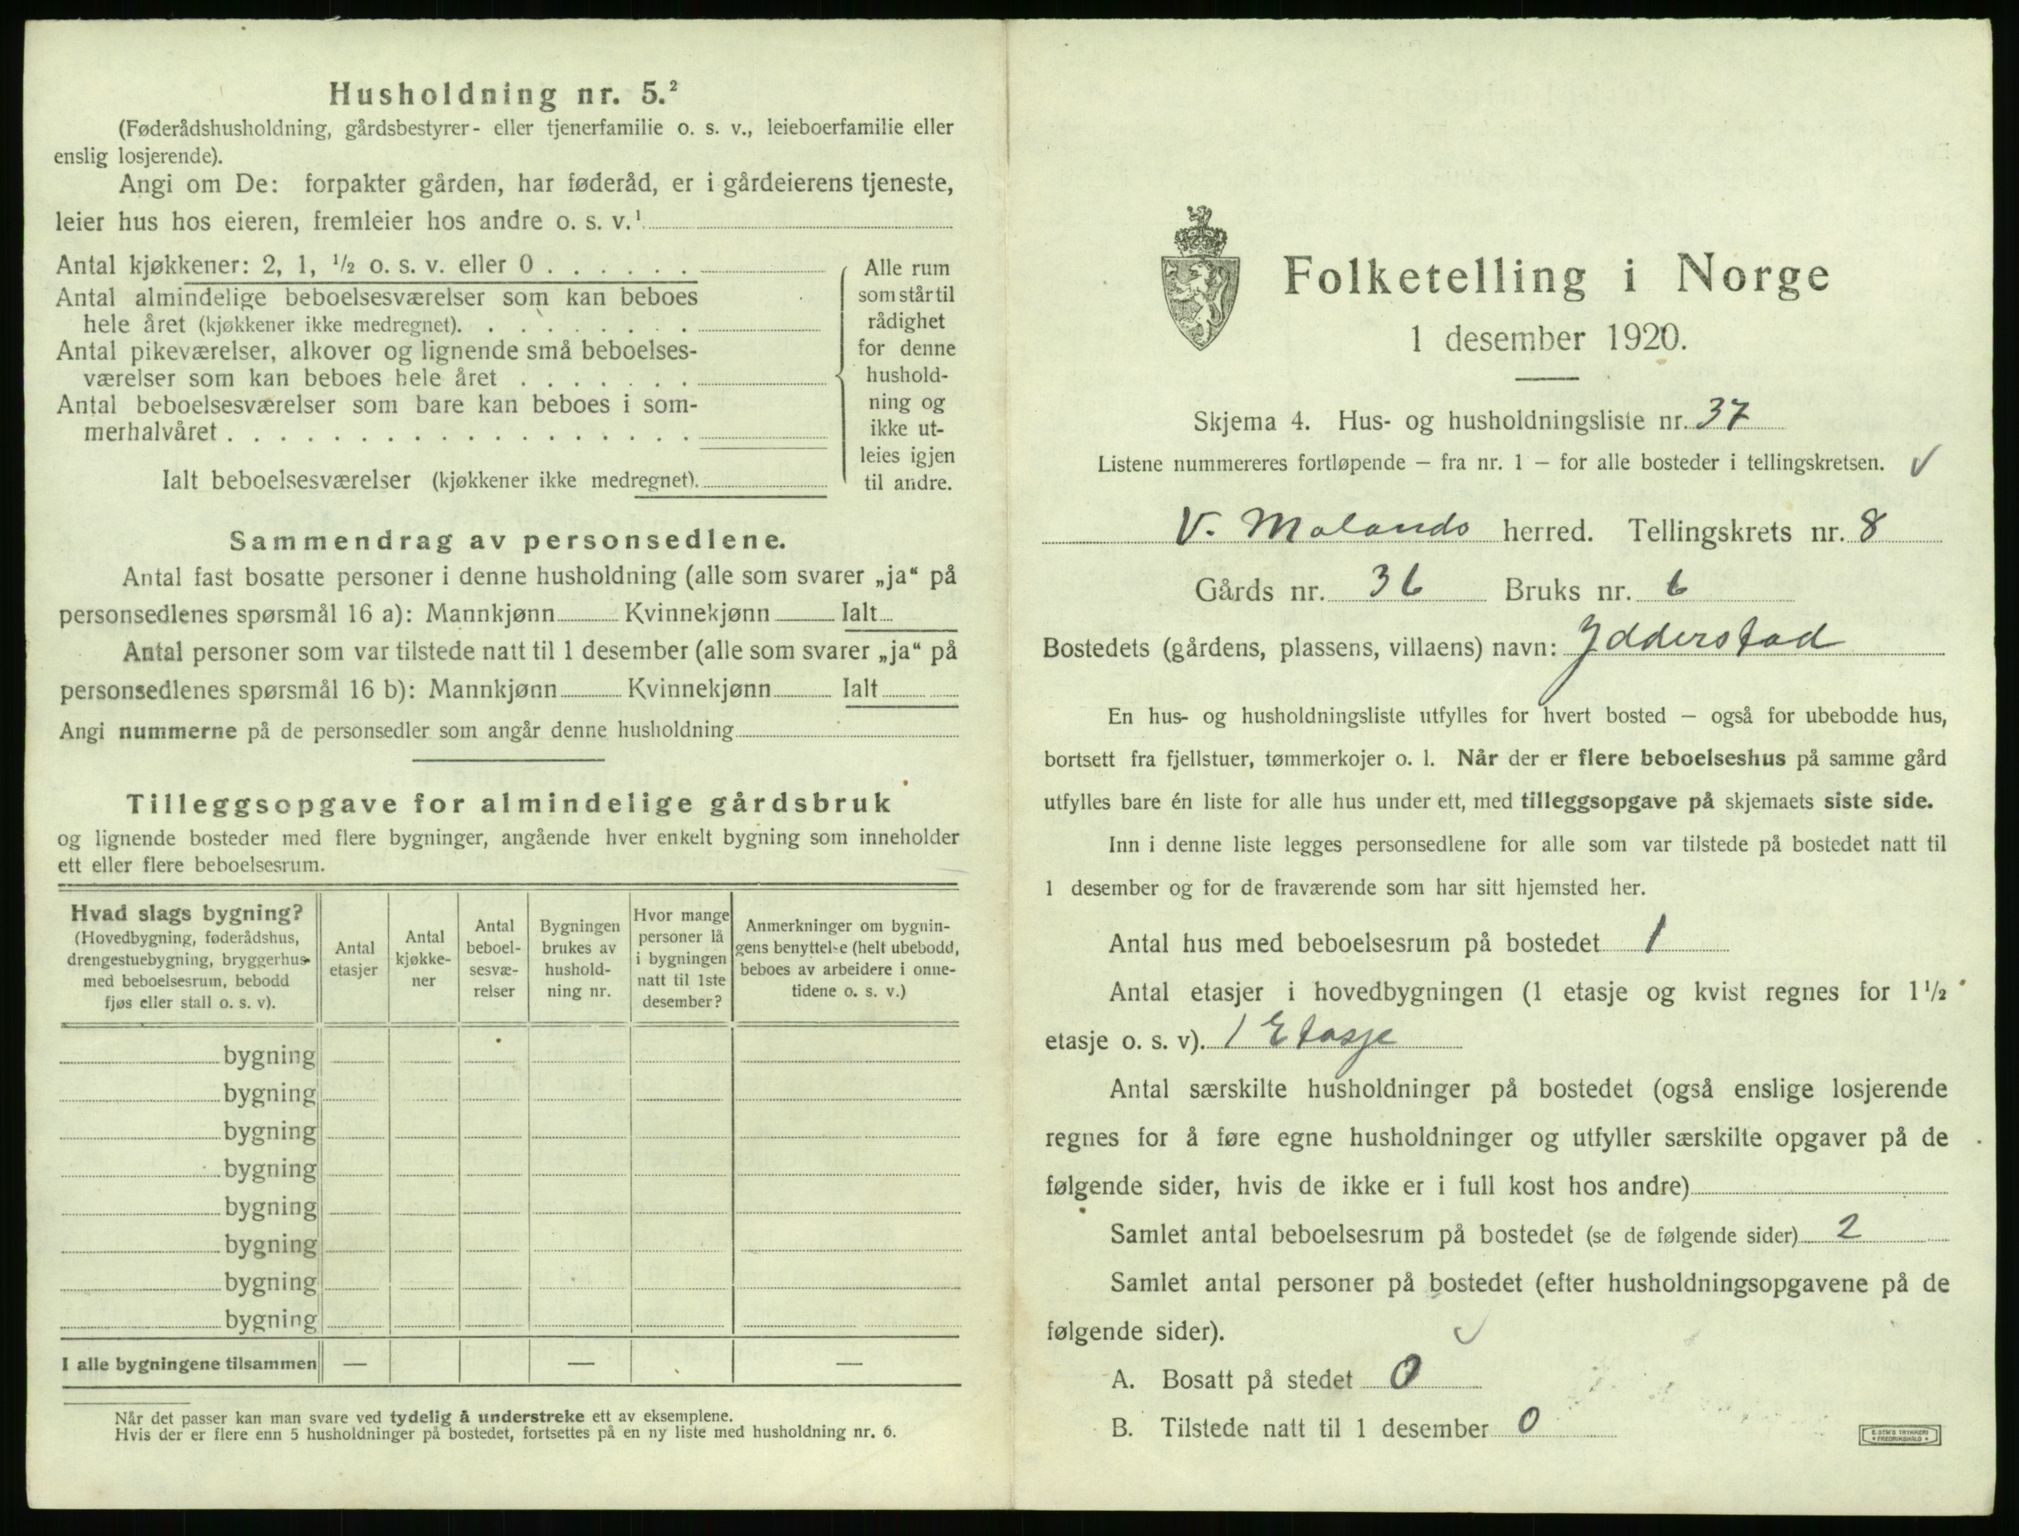 Husholdning nr. 5.²
(Føderådshusholdning, gårdsbestyrer- eller tjenerfamilie o. s. v., leieboerfamilie eller
enslig losjerende).
Angi om De: forpakter gården, har føderåd, er i gårdeierens tjeneste,
leier hus hos eieren, fremleier hos andre o. s. v.¹
Antal kjøkkener: 2, 1, ½ o. s. v. eller 0 . . . . . .
Antal almindelige beboelsesværelser som kan beboes
hele året (kjøkkener ikke medregnet). . . . . . . . .
Antal pikeværelser, alkover og lignende små beboelses-
værelser som kan beboes hele året . . . . . . .
Antal beboelsesværelser som bare kan beboes i som-
merhalvåret . . . . . . . . . . . . . . . . . .
Ialt beboelsesværelser (kjøkkener ikke medregnet).
Alle rum
som står til
rådighet
for denne
hushold-
ning og
ikke ut-
leies igjen
til andre.
Sammendrag av personsedlene.
Antal fast bosatte personer i denne husholdning (alle som svarer „ja“ på
personsedlenes spørsmål 16 a): Mannkjønn Kvinnekjønn Ialt
Antal personer som var tilstede natt til 1 desember (alle som svarer „ja“ på
personsedlenes spørsmål 16 b): Mannkjønn Kvinnekjønn Ialt
Angi nummerne på de personsedler som angår denne husholdning
Tilleggsopgave for almindelige gårdsbruk
og lignende bosteder med flere bygninger, angående hver enkelt bygning som inneholder
ett eller flere beboelsesrum.
Hvad slags bygning?
(Hovedbygning, føderådshus,
drengestuebygning, bryggerhus
med beboelsesrum, bebodd
fjøs eller stall o. s. v).
Antal
etasjer
Antal
kjøkke-
ner
Antal
beboel-
sesvæ-
relser
Bygningen
brukes av
hushold-
ning nr.
Hvor mange
personer lå
i bygningen
natt til 1ste
desember?
Anmerkninger om bygnin-
gens benyttelse (helt ubebodd,
beboes av arbeidere i onne-
tidene o. s. v.)
bygning
bygning
bygning
bygning
bygning
bygning
bygning
bygning
I alle bygningene tilsammen — — —
Når det passer kan man svare ved tydelig å understreke ett av eksemplene.
Hvis der er flere enn 5 husholdninger på bostedet, fortsettes på en ny liste med husholdning nr. 6.
Folketelling i Norge
1 desember 1920.
Skjema 4. Hus- og husholdningsliste nr. 37
Listene nummereres fortløpende — fra nr. 1 — for alle bosteder i tellingskretsen. ✓
V. Molands herred. Tellingskrets nr. 8
Gårds nr. 36 Bruks nr. 6
Bostedets (gårdens, plassens, villaens) navn: Ydderstad
En hus- og husholdningsliste utfylles for hvert bosted — også for ubebodde hus,
bortsett fra fjellstuer, tømmerkojer o. l. Når der er flere beboelseshus på samme gård
utfylles bare én liste for alle hus under ett, med tilleggsopgave på skjemaets siste side.
Inn i denne liste legges personsedlene for alle som var tilstede på bostedet natt til
1 desember og for de fraværende som har sitt hjemsted her.
Antal hus med beboelsesrum på bostedet 1
Antal etasjer i hovedbygningen (1 etasje og kvist regnes for 1½
etasje o. s. v). 1 Etasje
Antal særskilte husholdninger på bostedet (også enslige losjerende
regnes for å føre egne husholdninger og utfyller særskilte opgaver på de
følgende sider, hvis de ikke er i full kost hos andre)
Samlet antal beboelsesrum på bostedet (se de følgende sider) 2
Samlet antal personer på bostedet (efter husholdningsopgavene på de
følgende sider). ✓
A. Bosatt på stedet 0
B. Tilstede natt til 1 desember 0
E. SEM'S TRYKKERI
FREDRIKSHALD